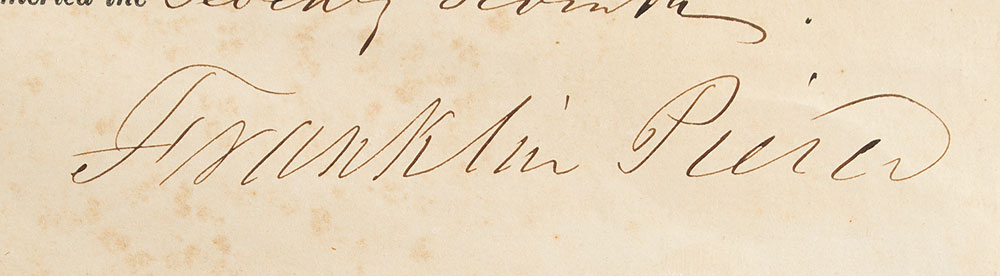 merica the Seventy Seventh.
Franklin Pierce